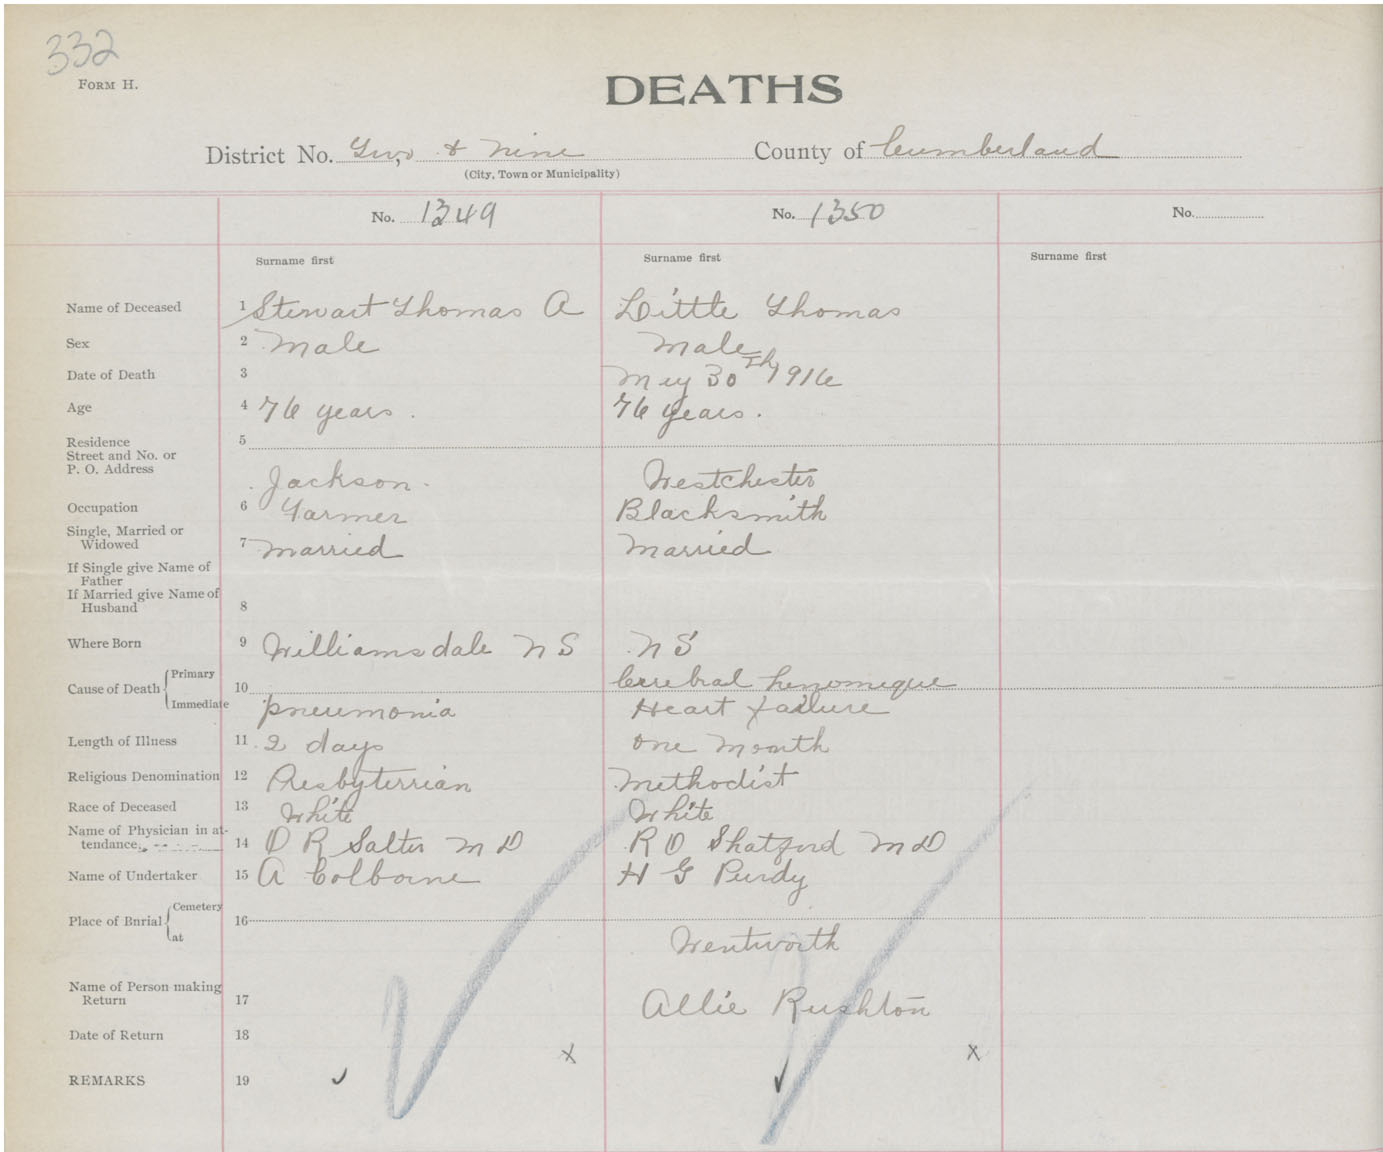 332
FORM H.
DEATHS
District No. Two & Nine County of Cumberland
(City, Town or Municipality)
No. 1349 No. 1350 No.
Surname first Surname first Surname first
Name of Deceased 1 Stewart Thomas A Little Thomas
Sex 2 Male Male
Date of Death 3 May 30th 1916
Age 4 76 years. 76 years.
Residence 5
Street and No. or
P. O. Address Jackson Westchester
Occupation 6 Farmer Blacksmith
Single, Married or
Widowed 7 Married Married
If Single give Name of
Father
If Married give Name of
Husband 8
Where Born 9 Williamsdale N S N S
Primary Cerebral
Cause of Death 10
Immediate pneumonia Heart failure
Length of Illness 11 2 days One Month
Religious Denomination 12 Presbyterrian Methodist
Race of Deceased 13 White White
Name of Physician in at-
tendance, 14 D R Salter M D R D Shatford M D
Name of Undertaker 15 A Colborne H G Purdy
Cemetery
Place of Bnrial 16
at Wentworth
Name of Person making
Return 17 Allie Rushton
Date of Return 18
x x
REMARKS 19 ✓ ✓